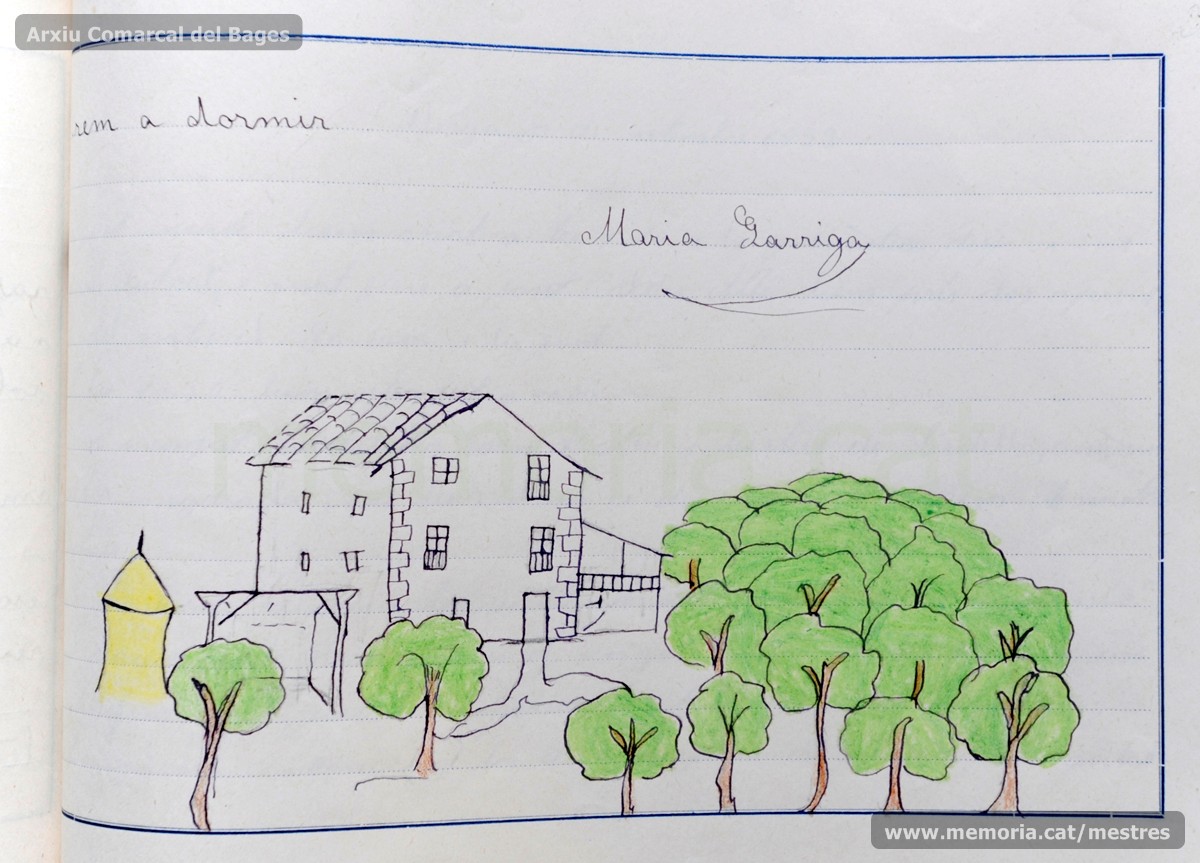 Arxiu Comarcal del Bages
rem a dormir
Maria Garriga
memoria.cat
www.memoria.cat/mestres